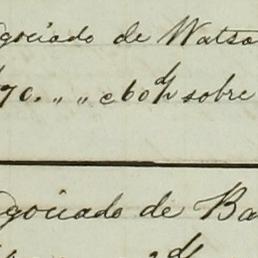 gociado de Watso
70. „ „ c 60 d/ sobre
gociado de Ba